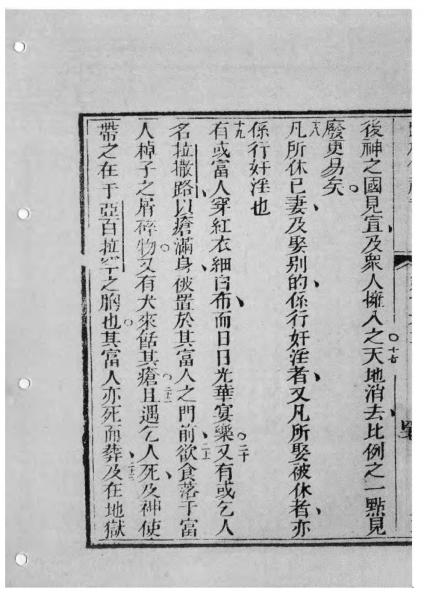 後神之國見宣及眾人擁入之十七天地消去比例之一點見
廢更易矣
十八凡所休己妻及娶別的係行奸淫者又凡所娶被休者亦
係行奸淫也
十九有或富人穿紅衣細白布而日日光華宴樂二十又有或乞人
名拉撒路以瘡滿身彼置於其富人之門前二一欲食落于富
人棹子之屑碎物又有犬來餂其瘡二二且遇乞人死及神使
帶之在于亞百拉罕之胸也其富人亦死而葬二三及在地獄